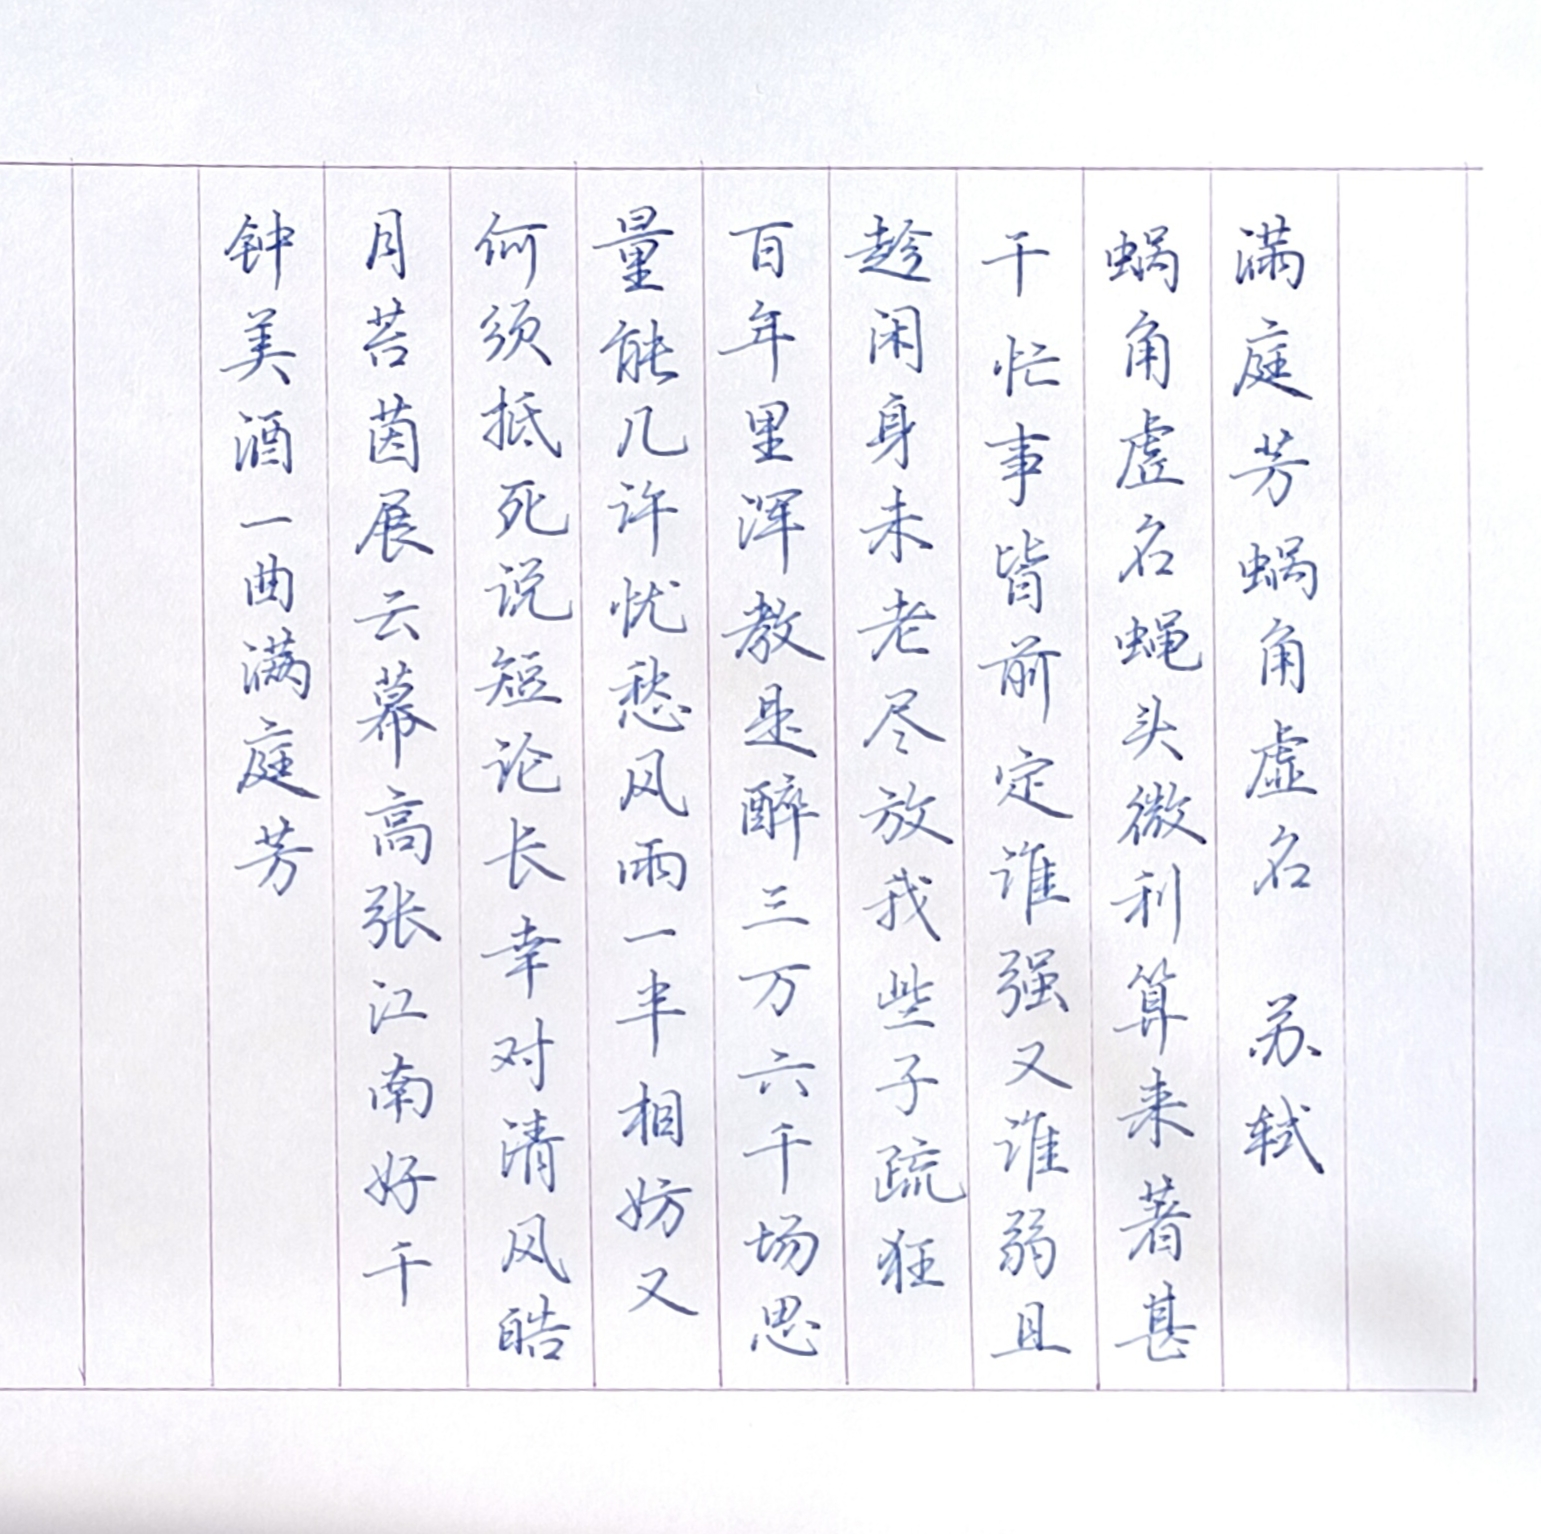 满庭芳蜗角虚名 苏轼
蜗角虚名蝇头微利算来著甚
干忙事皆前定谁强又谁弱且
趁闲身未老尽放我些子疏狂
百年里浑教是醉三万六千场思
量能几许忧愁风雨一半相妨又
何须抵死说短论长幸对清风皓
月苔茵展云幕高张江南好千
钟美酒一曲满庭芳